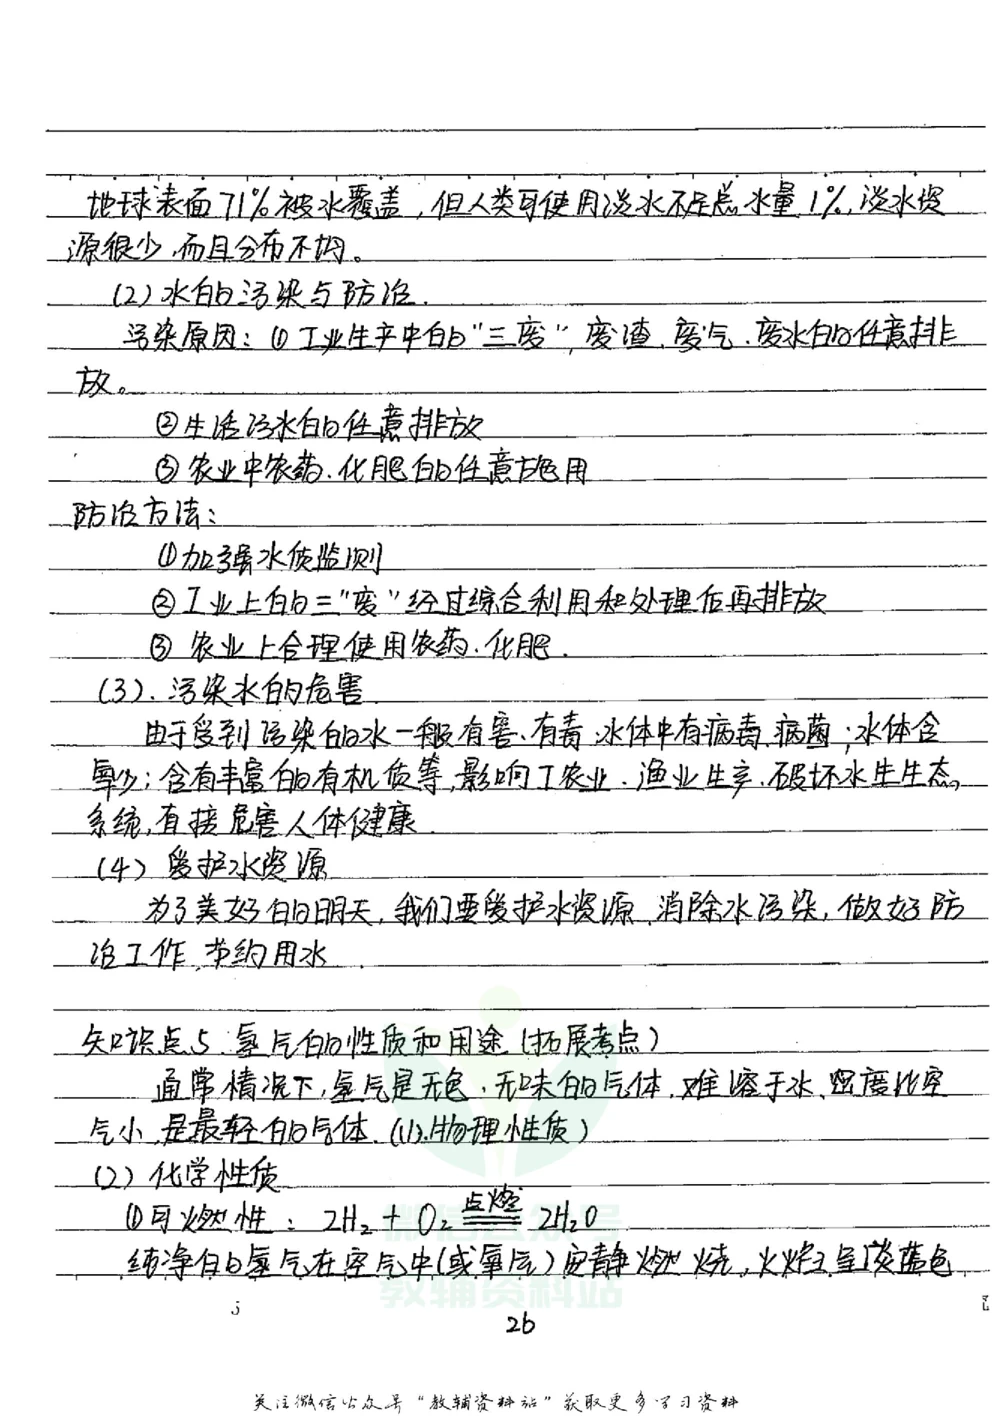 地球表面71%被水覆盖,但人类可使用淡水不足总水量1%,淡水资
源很少,而且分布不均。
(2)水的污染与防治.
污染原因:①工业生产中的"三废",废渣、废气、废水的任意排
放。
②生活污水的任意排放
③农业中农药、化肥的任意施用
防治方法:
①加强水质监测
②工业上的三"废"经过综合利用和处理后再排放
③ 农业上合理使用农药、化肥.
(3).污染水的危害
由于受到污染的水一般有害、有毒,水体中有病毒、病菌;水体含
氧少;含有丰富的有机质等,影响了农业、渔业生产、破坏水生生态
系统,直接危害人体健康.
(4)爱护水资源
为了美好的明天,我们要爱护水资源,消除水污染,做好防
治工作,节约用水.
知识点5.氢气的性质和用途(拓展考点)
通常情况下,氢气是无色、无味的气体,难溶于水、密度比空
气小,是最轻的气体.((1).物理性质)
(2)化学性质
①可燃性: 2H₂+O₂ 点燃 2H₂O
纯净的氢气在空气中(或氧气)安静燃烧,火焰呈淡蓝色
微信公众号
教辅资料站
5
26
关注微信公众号"教辅资料站"获取更多学习资料